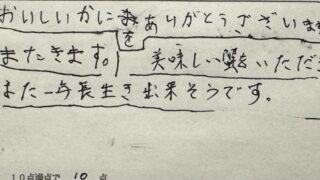 おいしいかに をありがとうございま
またきます。 美味しい蟹をいただき
また一年長生き出来そうです。
10点満点で 10 点